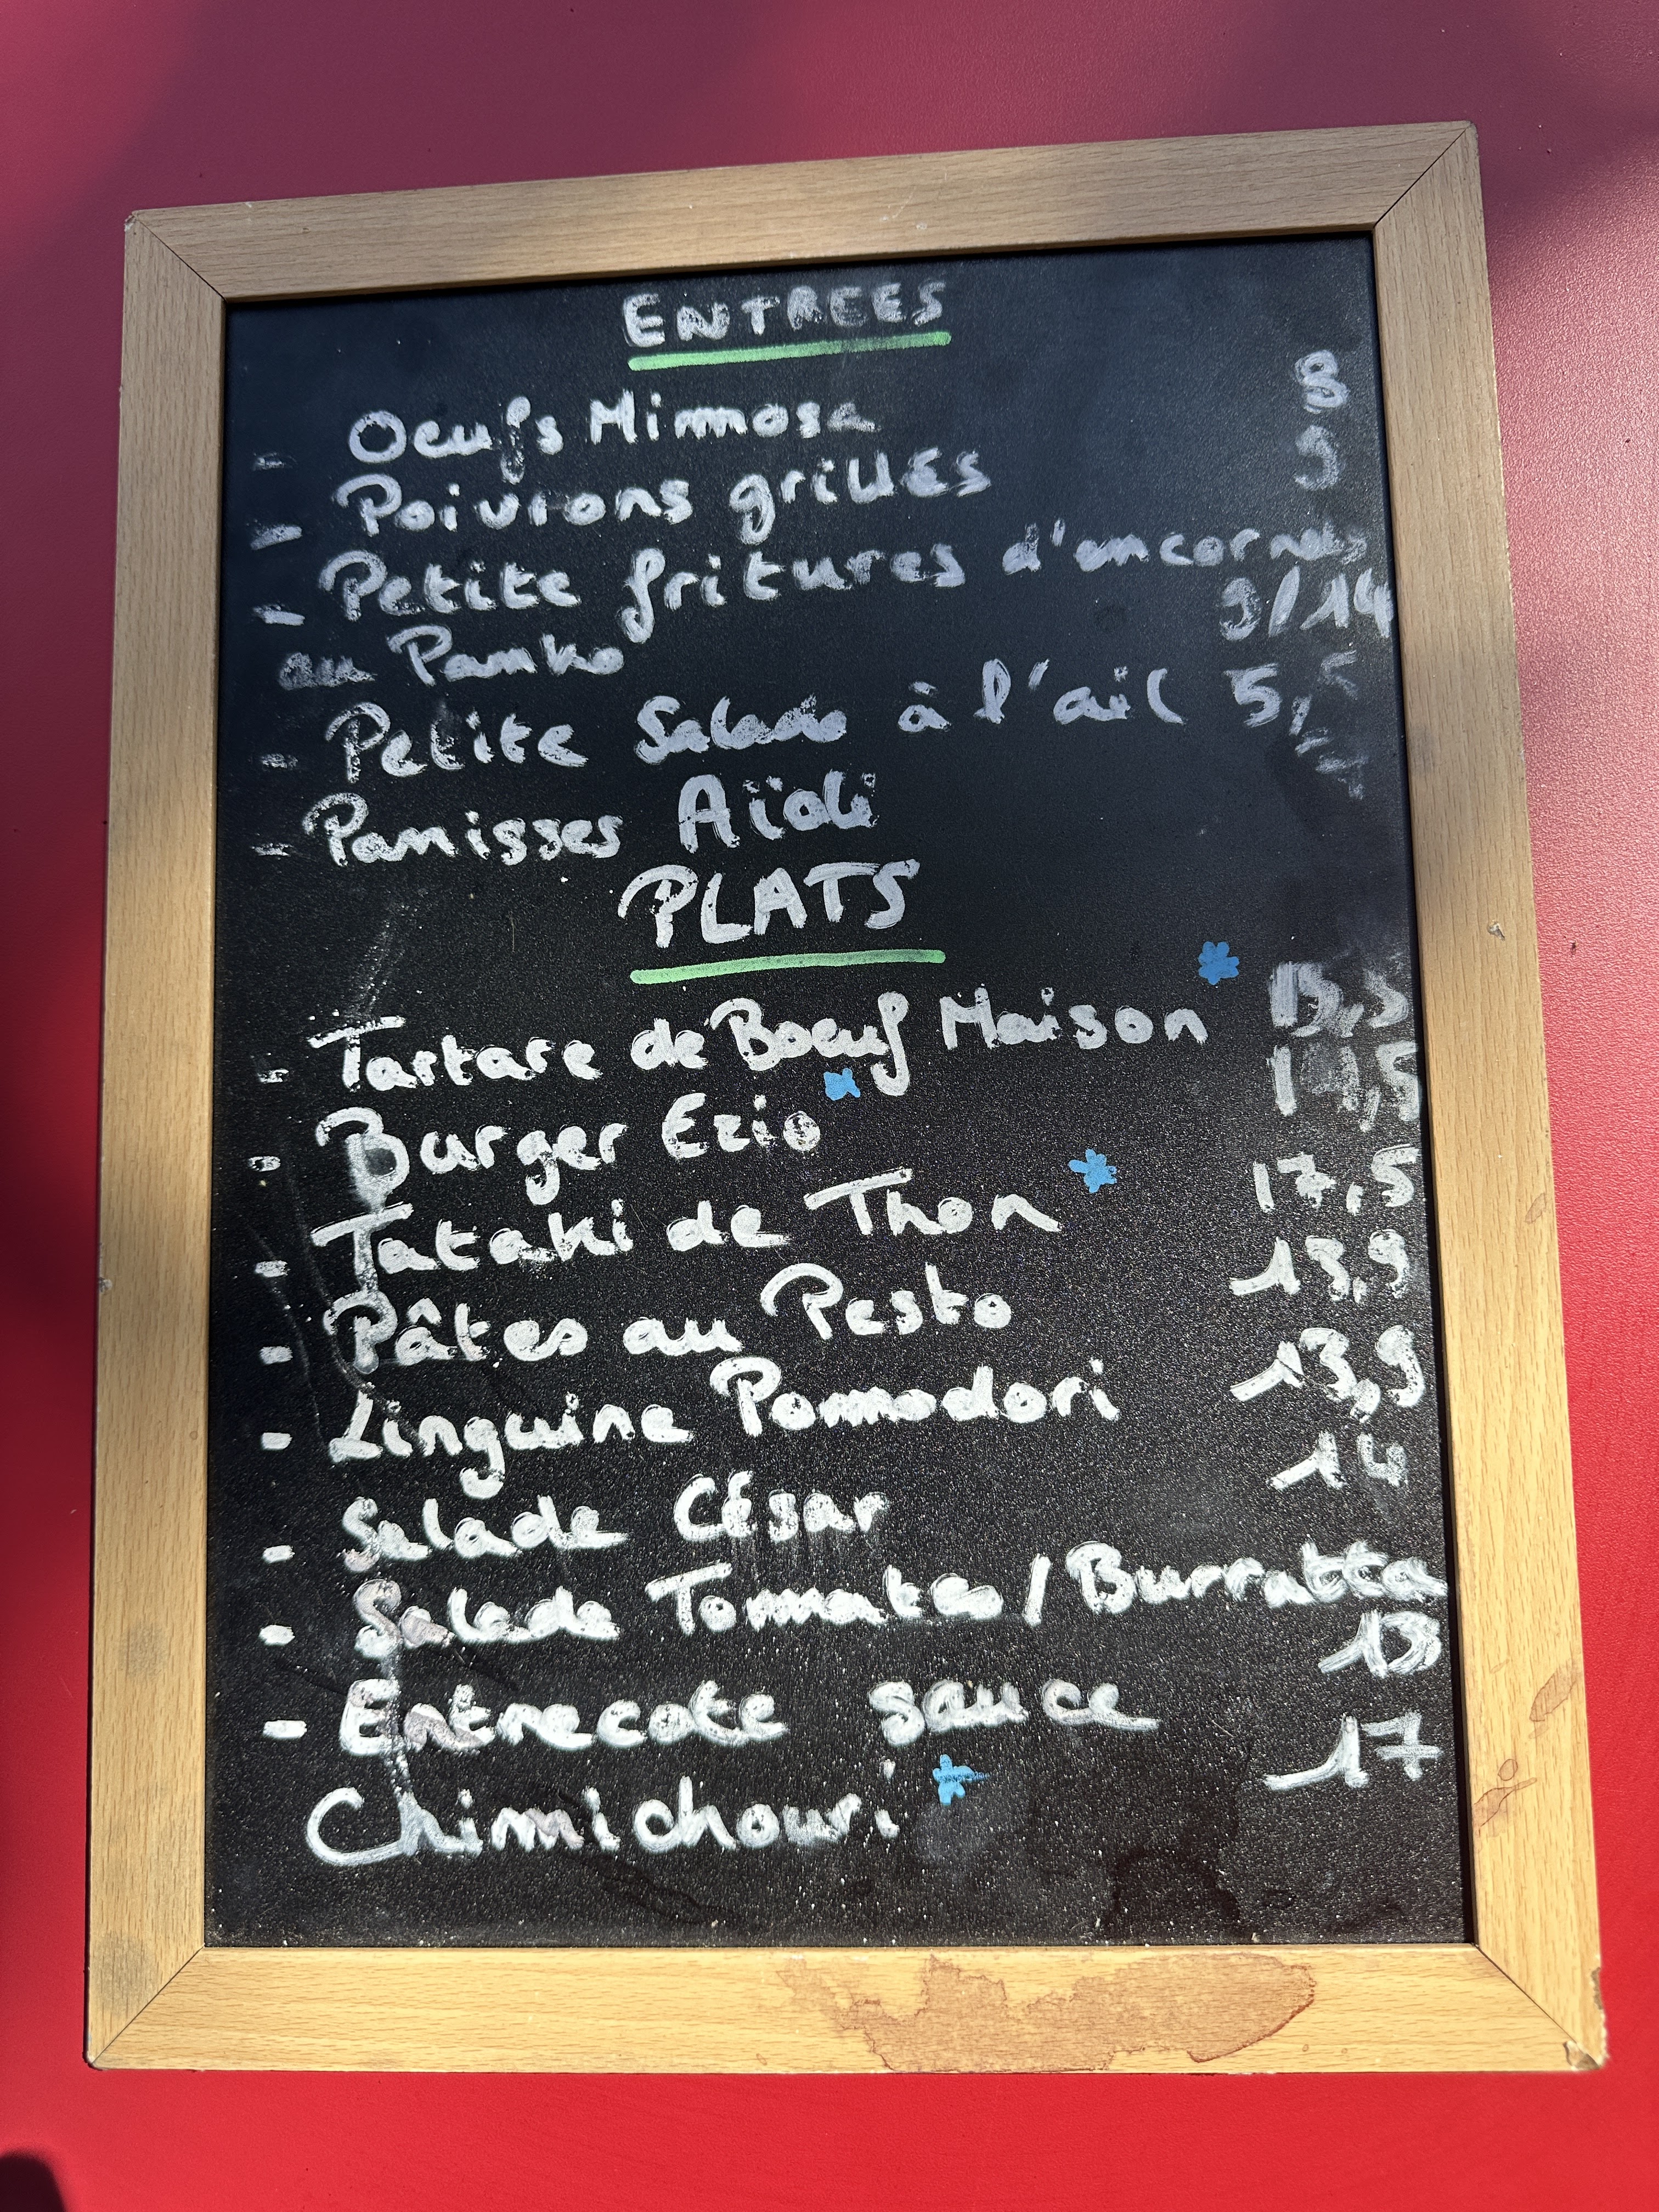 ENTREES
- Oeufs Mimosa 8
- Poivrons grillés 9
- Petite fritures d'encornets
au Panko 9/14
- Petite Salade à l'ail 5,5
- Panisses Aïoli
PLATS
- Tartare de Boeuf Maison *
- Burger Ezio *
- Tataki de Thon * 17,5
- Pâtes au Pesto 13,9
- Linguine Pomodori 13,9
- Salade César 14
- Salade Tomates/Burratta
13
- Entrecote sauce
Chimichouri * 17